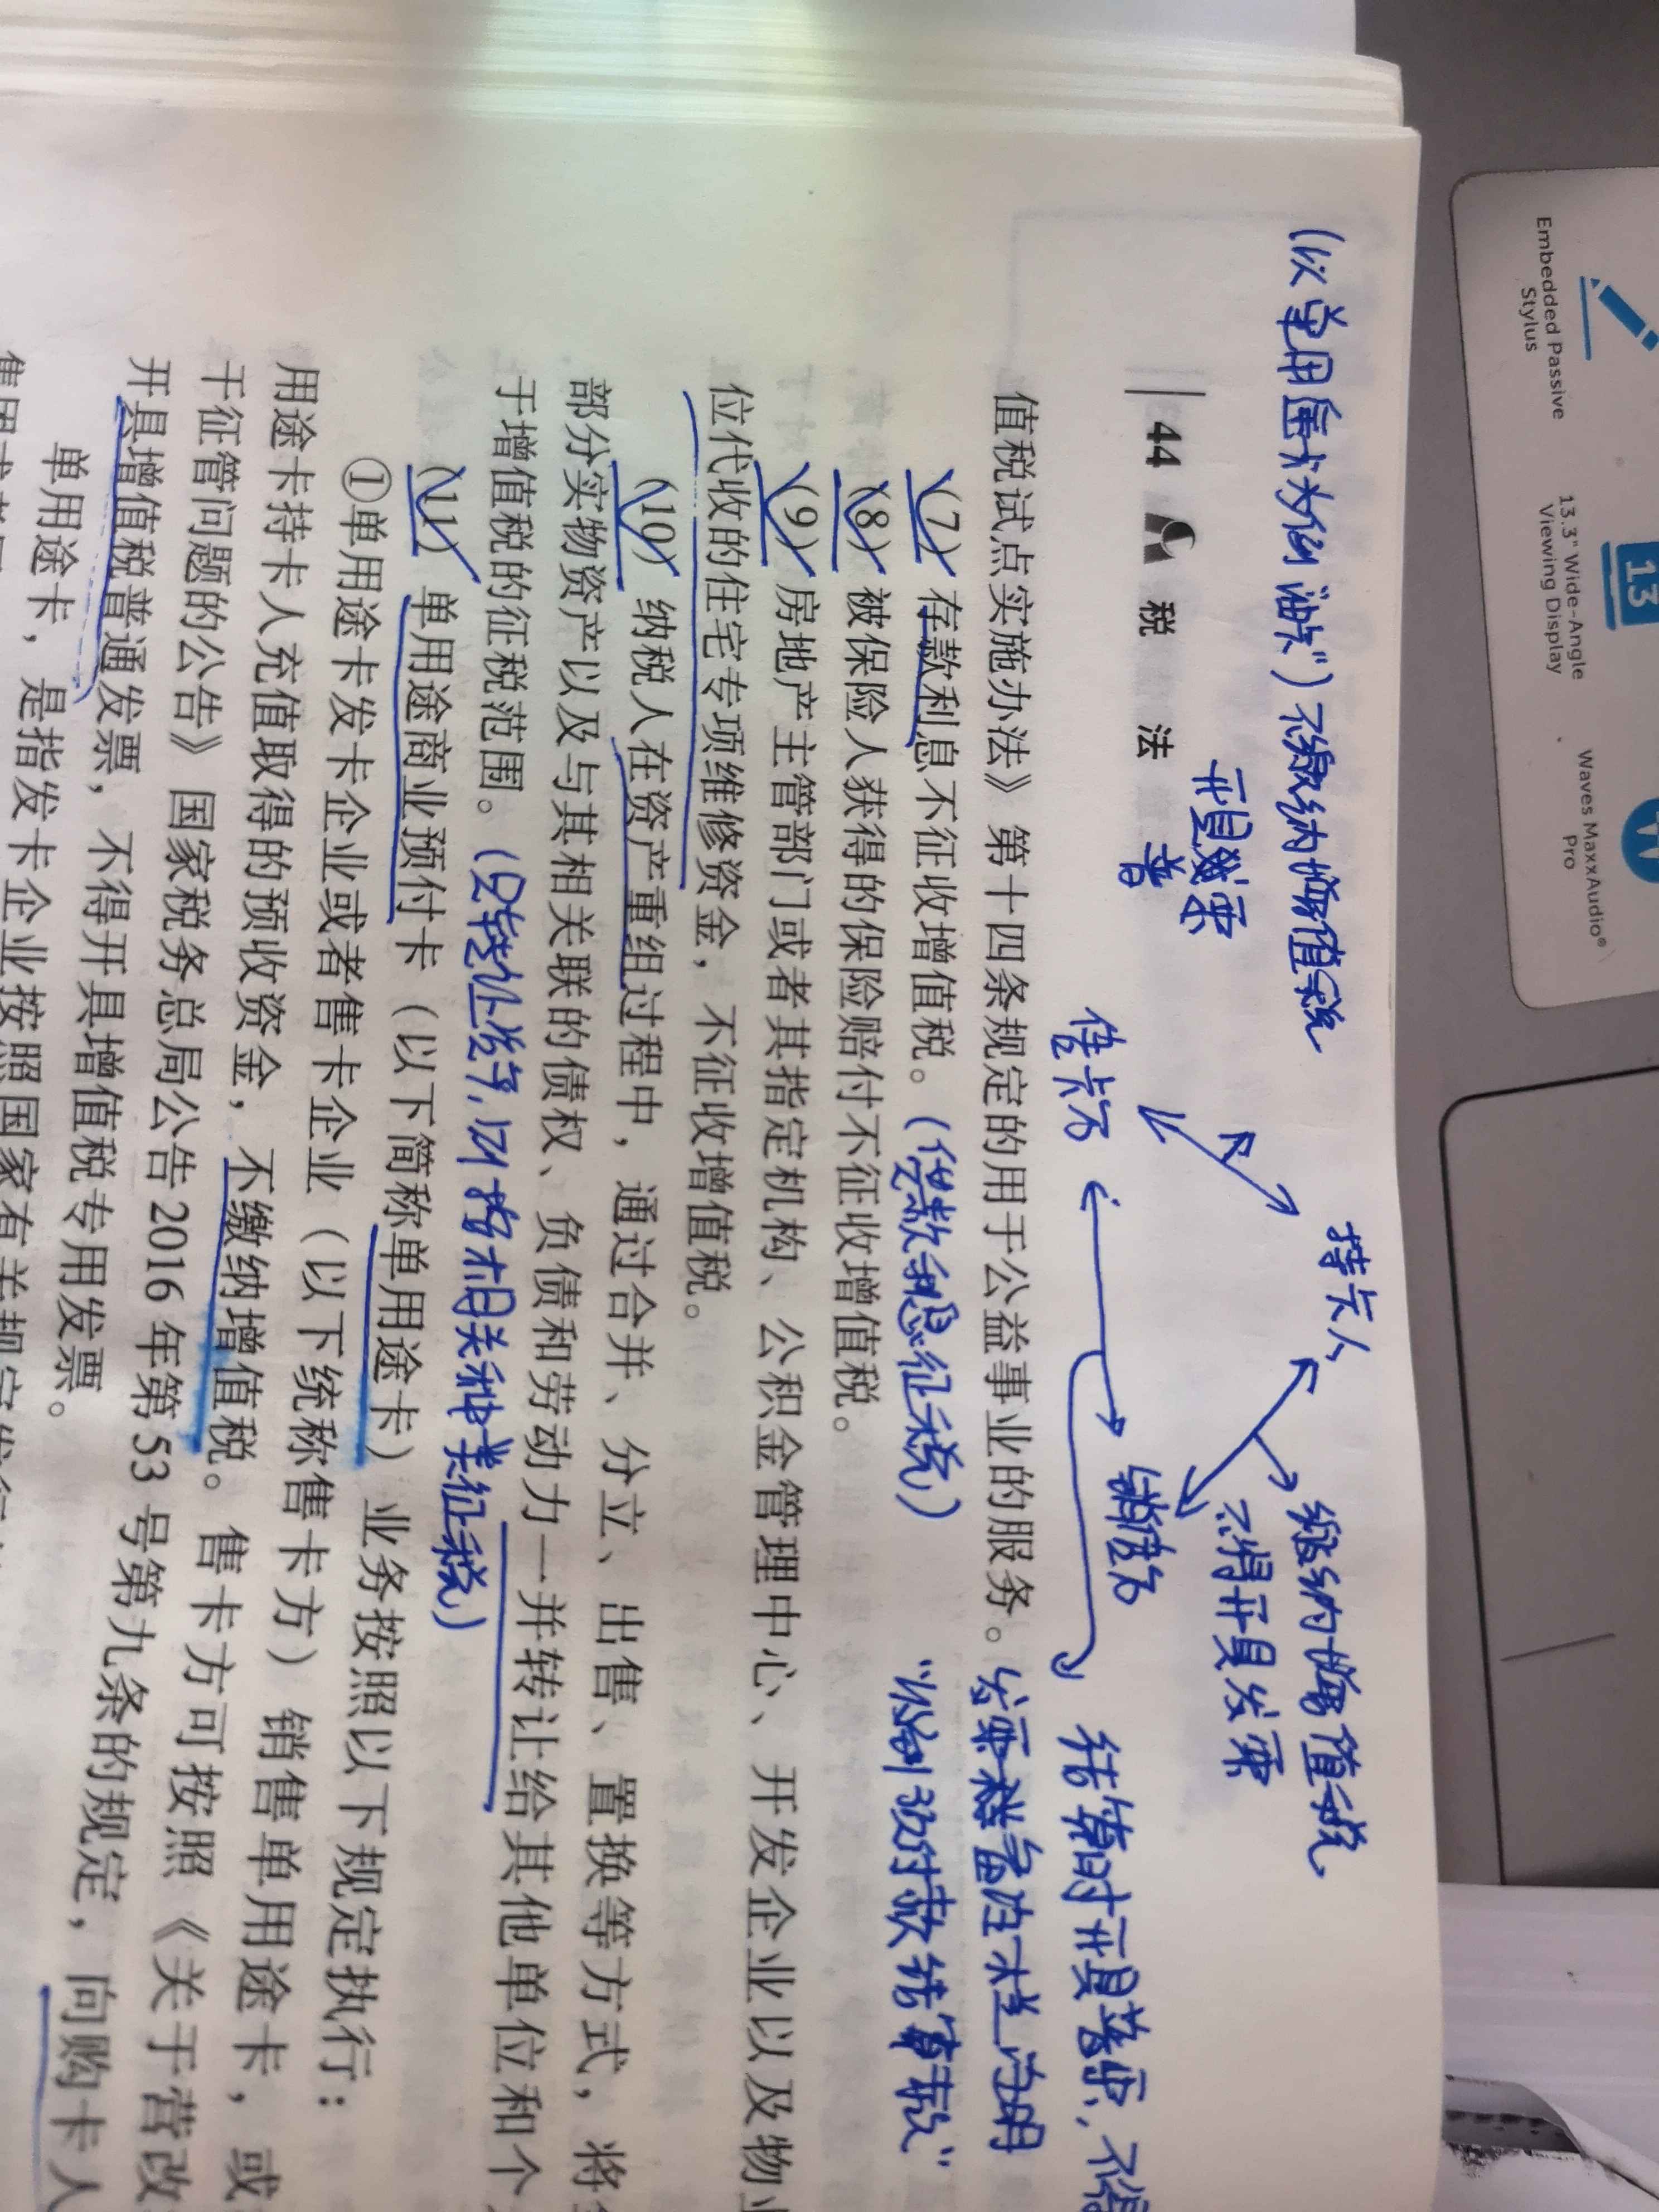 (以单用途卡为例"油卡")不缴纳增值税
开具发票
普
售卡方
持卡人
缴纳增值税
不得开具发票
销售方
结算时开具普票,不得
发票備备注栏注明
"收到预付款结算款"
44 税 法
值税试点实施办法》第十四条规定的用于公益事业的服务。
(7) 存款利息不征收增值税。(贷款利息征税)
(8) 被保险人获得的保险赔付不征收增值税。
(9) 房地产主管部门或者其指定机构、公积金管理中心、开发企业以及物业
位代收的住宅专项维修资金,不征收增值税。
(10) 纳税人在资产重组过程中,通过合并、分立、出售、置换等方式,将
部分实物资产以及与其相关联的债权、负债和劳动力一并转让给其他单位和个
于增值税的征税范围。(只转让货物,
相关种类征税)
(11) 单用途商业预付卡(以下简称单用途卡)业务按照以下规定执行:
①单用途卡发卡企业或者售卡企业(以下统称售卡方)销售单用途卡,或
用途卡持卡人充值取得的预收资金,不缴纳增值税。售卡方可按照《关于营改
于征管问题的公告》国家税务总局公告2016年第53号第九条的规定,向购卡人
开具增值税普通发票,不得开具增值税专用发票。
单用途卡,是指发卡企业按照国家有关规定发行
Embedded Passive
Stylus
13
13.3" Wide-Angle
Viewing Display
Waves MaxxAudio®
Pro